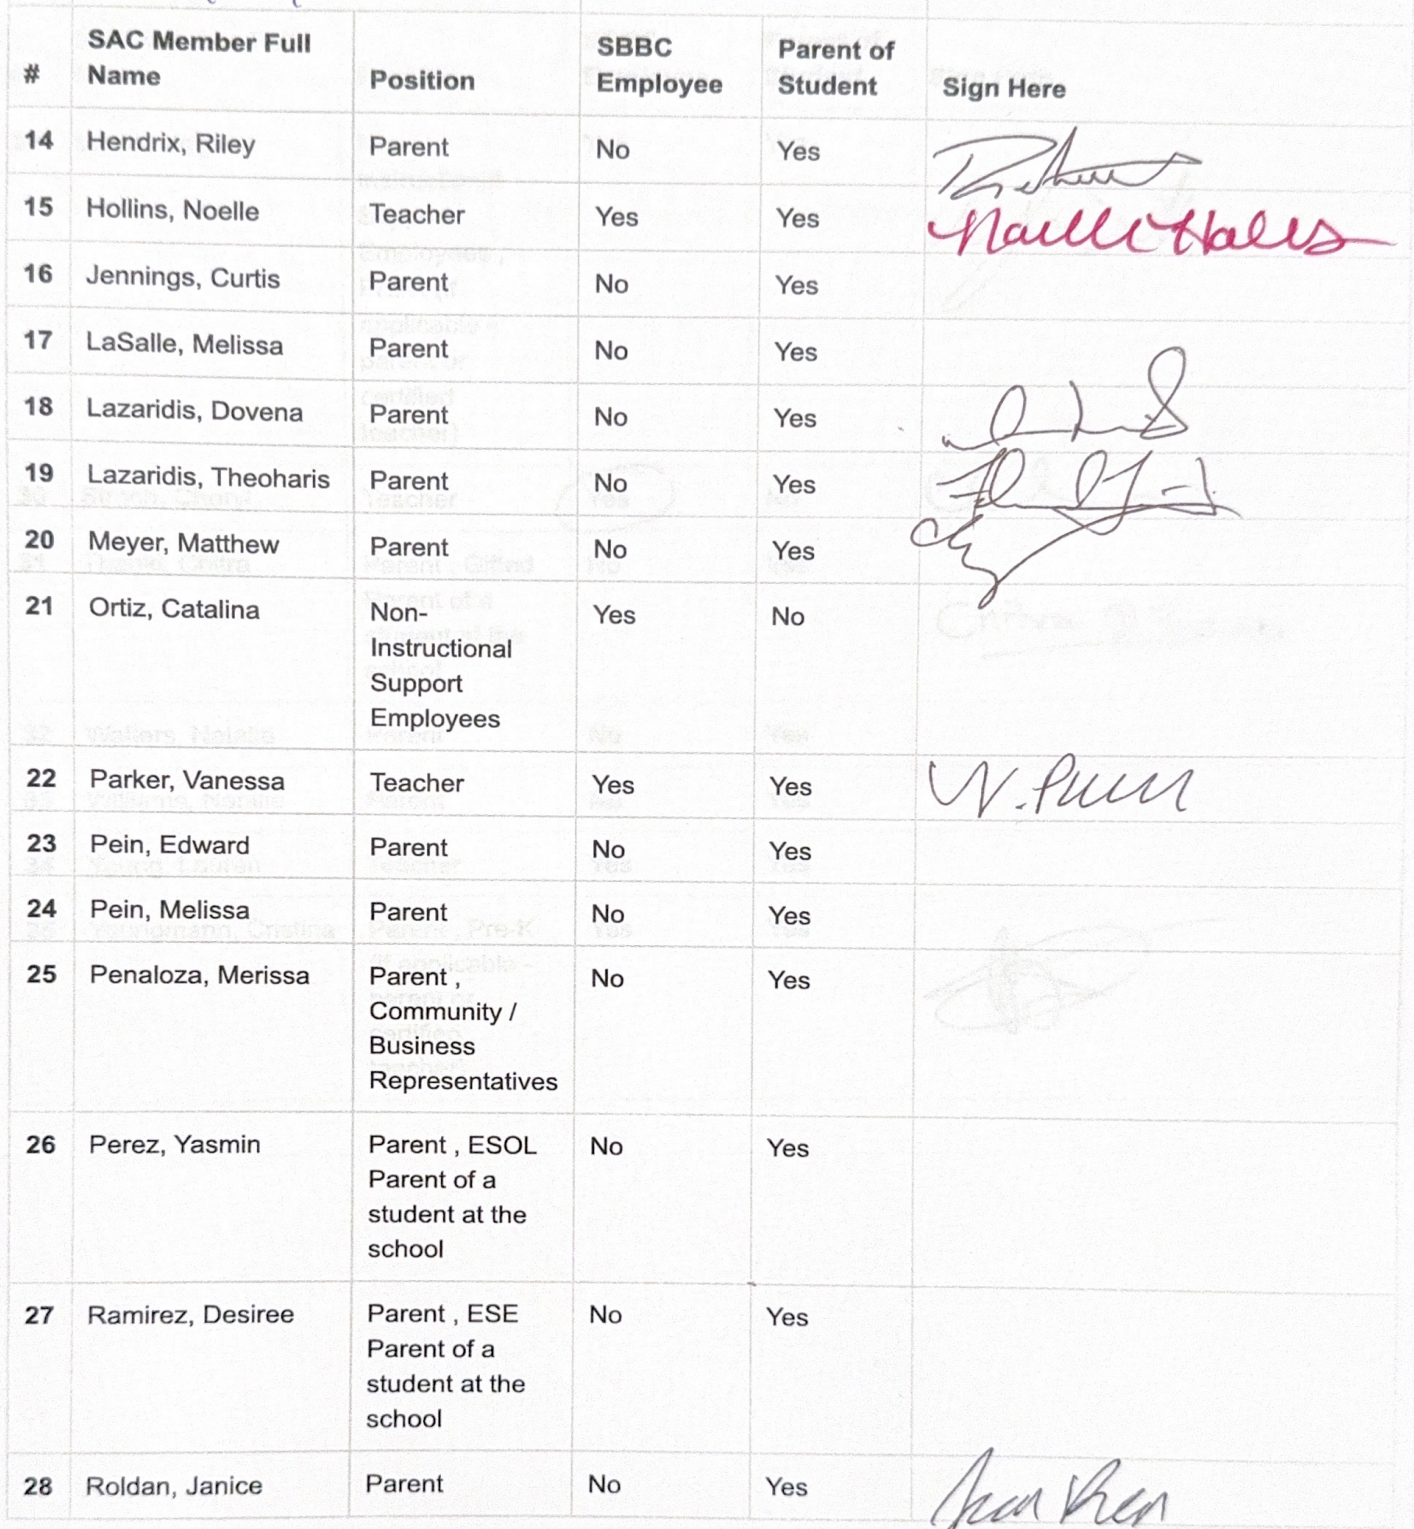 # SAC Member Full Name Position SBBC Employee Parent of Student Sign Here
14 Hendrix, Riley Parent No Yes
15 Hollins, Noelle Teacher Yes Yes
16 Jennings, Curtis Parent No Yes
17 LaSalle, Melissa Parent No Yes
18 Lazaridis, Dovena Parent No Yes
19 Lazaridis, Theoharis Parent No Yes
20 Meyer, Matthew Parent No Yes
21 Ortiz, Catalina Non-Instructional Support Employees Yes No
22 Parker, Vanessa Teacher Yes Yes
23 Pein, Edward Parent No Yes
24 Pein, Melissa Parent No Yes
25 Penaloza, Merissa Parent , Community / Business Representatives No Yes
26 Perez, Yasmin Parent , ESOL Parent of a student at the school No Yes
27 Ramirez, Desiree Parent , ESE Parent of a student at the school No Yes
28 Roldan, Janice Parent No Yes